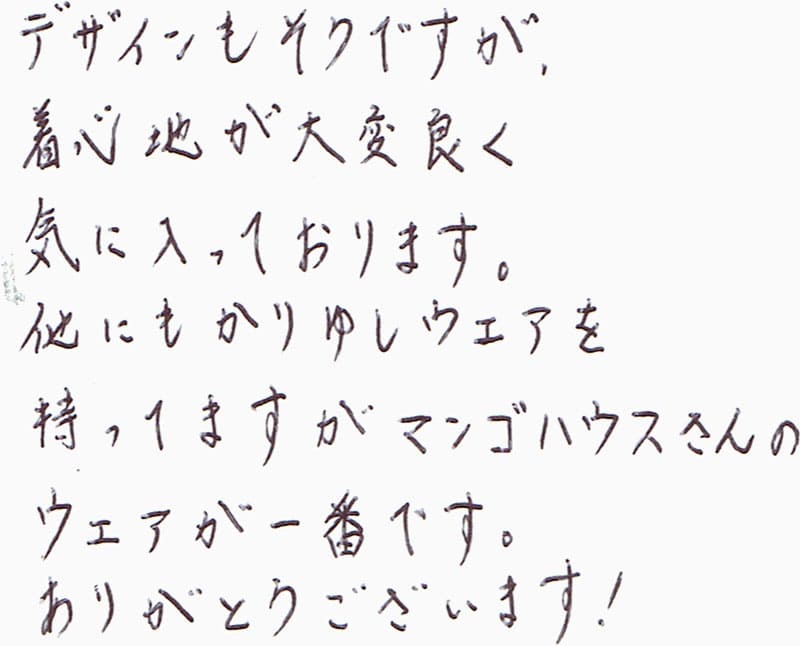 デザインもそうですが、
着心地が大変良く
気に入っております。
他にもかりゆしウェアを
持ってますがマンゴハウスさんの
ウェアが一番です。
ありがとうございます!